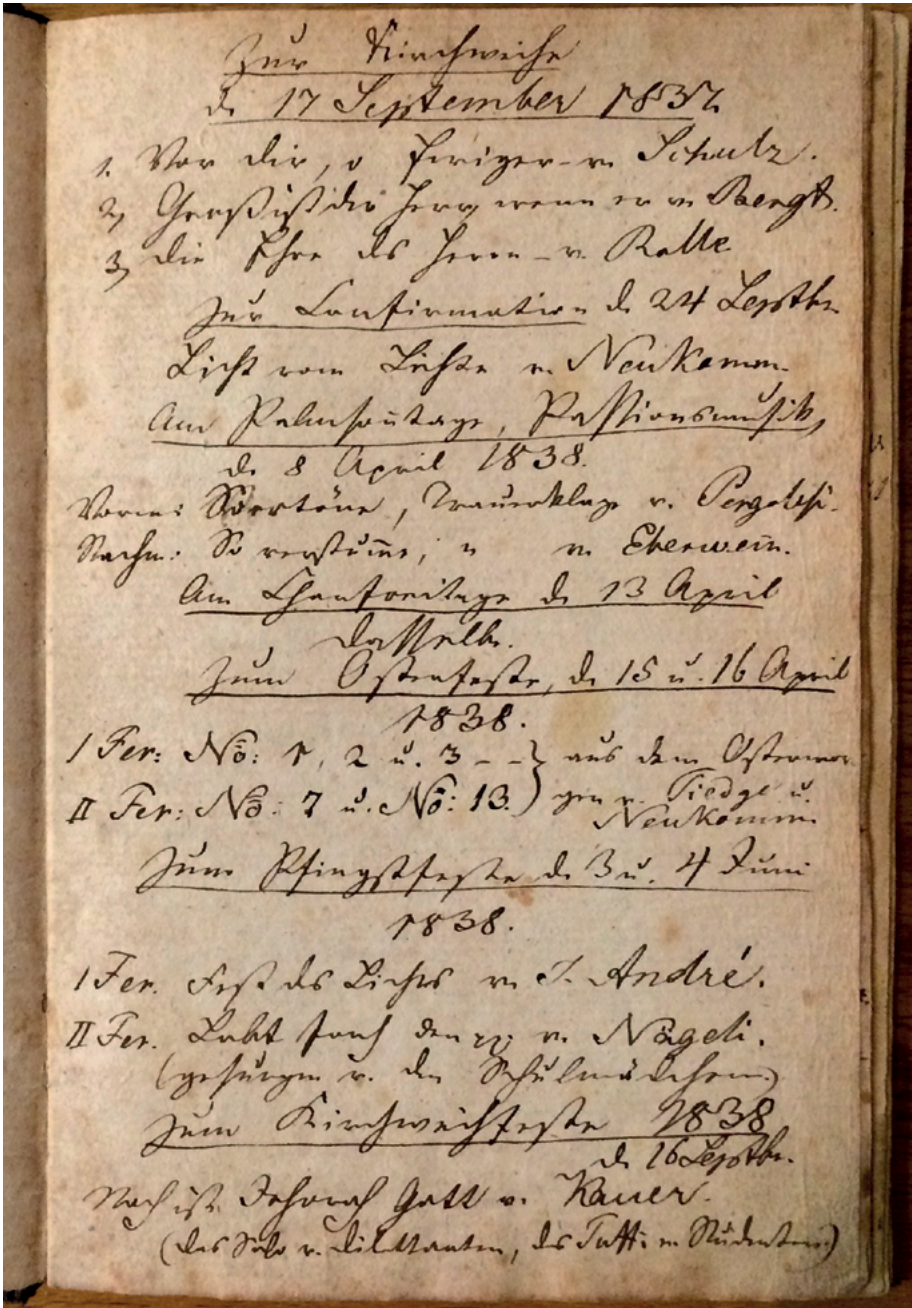 Zur Kirchweihe
d. 17 September 1837.
1. Vor dir, o Ewiger – v. Schulz.
2, Groß ist der Herr, wenn er v. Bergt.
3, Die Ehre des Herrn – v. Rolle
Zur Confirmation d. 24 Septbr.
Licht vom Lichte v. Neukomm.
Am Palmsontage, Passionsmusik,
d. 8 April 1838.
Vorm: , Trauerklage v. Pergolesi.
Nachm: So verstume, " v. Eberwein.
Am Charfreitage d. 13 April
dasselbe.
Zum Osterfeste, d. 15 u. 16 April
1838.
I Fer: No: 1, 2 u. 3 – – } aus dem Ostermor
II Fer: No: 7 u. No: 13. } gen v. Tiedge u.
Neukomm.
Zum Pfingstfeste d. 3 u. 4 Juni
1838.
I Fer. Fest des Lichts v. J. André.
II Fer. Lobt froh den v. Nägeli.
(gesungen v. den Schulmädchen)
Zum Kirchweihfeste 1838
d. 16 Septbr.
Noch ist Jehovah Gott v. Kauer.
(das Solo v. Dilettanten, das Tutti v. Studenten)